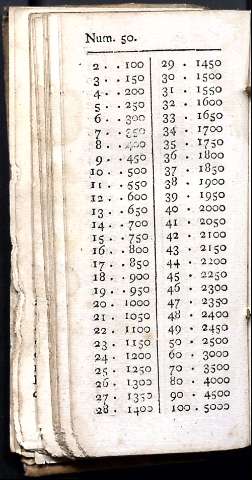 Num. 50.
2 . . 100
3 . . 150
4 . . 200
5 . . 250
6 . . 300
7 . . 350
8 . . 400
9 . . 450
10 . . 500
11 . . 550
12 . . 600
13 . . 650
14 . . 700
15 . . 750
16 . . 800
17 . . 850
18 . . 900
19 . . 950
20 . 1000
21 . 1050
22 . 1100
23 . 1150
24 . 1200
25 . 1250
26 . 1300
27 . 1350
28 . 1400
29 . 1450
30 . 1500
31 . 1550
32 . 1600
33 . 1650
34 . 1700
35 . 1750
36 . 1800
37 . 1850
38 . 1900
39 . 1950
40 . 2000
41 . 2050
42 . 2100
43 . 2150
44 . 2200
45 . 2250
46 . 2300
47 . 2350
48 . 2400
49 . 2450
50 . 2500
60 . 3000
70 . 3500
80 . 4000
90 . 4500
100 . 5000